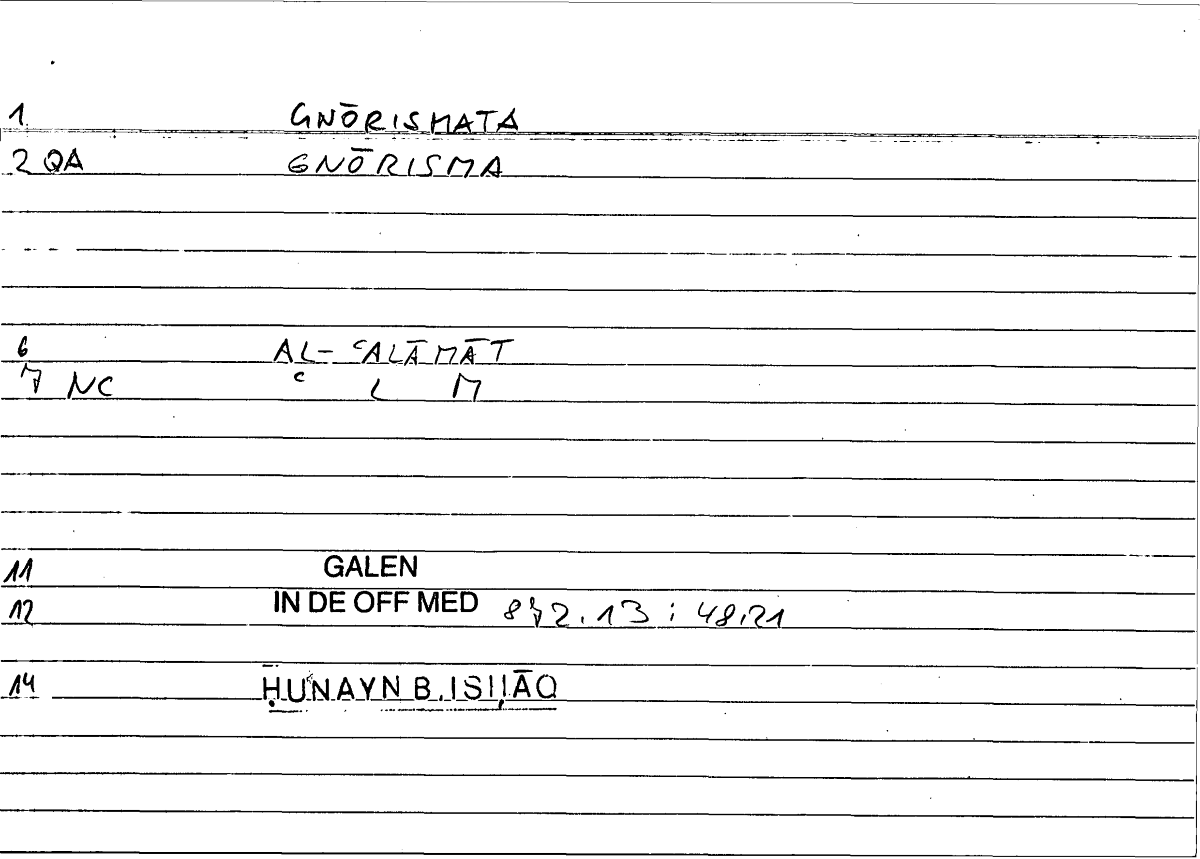 1 GNŌRISMATA
2 QA GNŌRISMA
6 AL-ʿALĀMĀT
7 NC ʿ L M
11 GALEN
12 IN DE OFF MED 872.13 : 48.21
14 ḤUNAYN B. ISḤĀQ